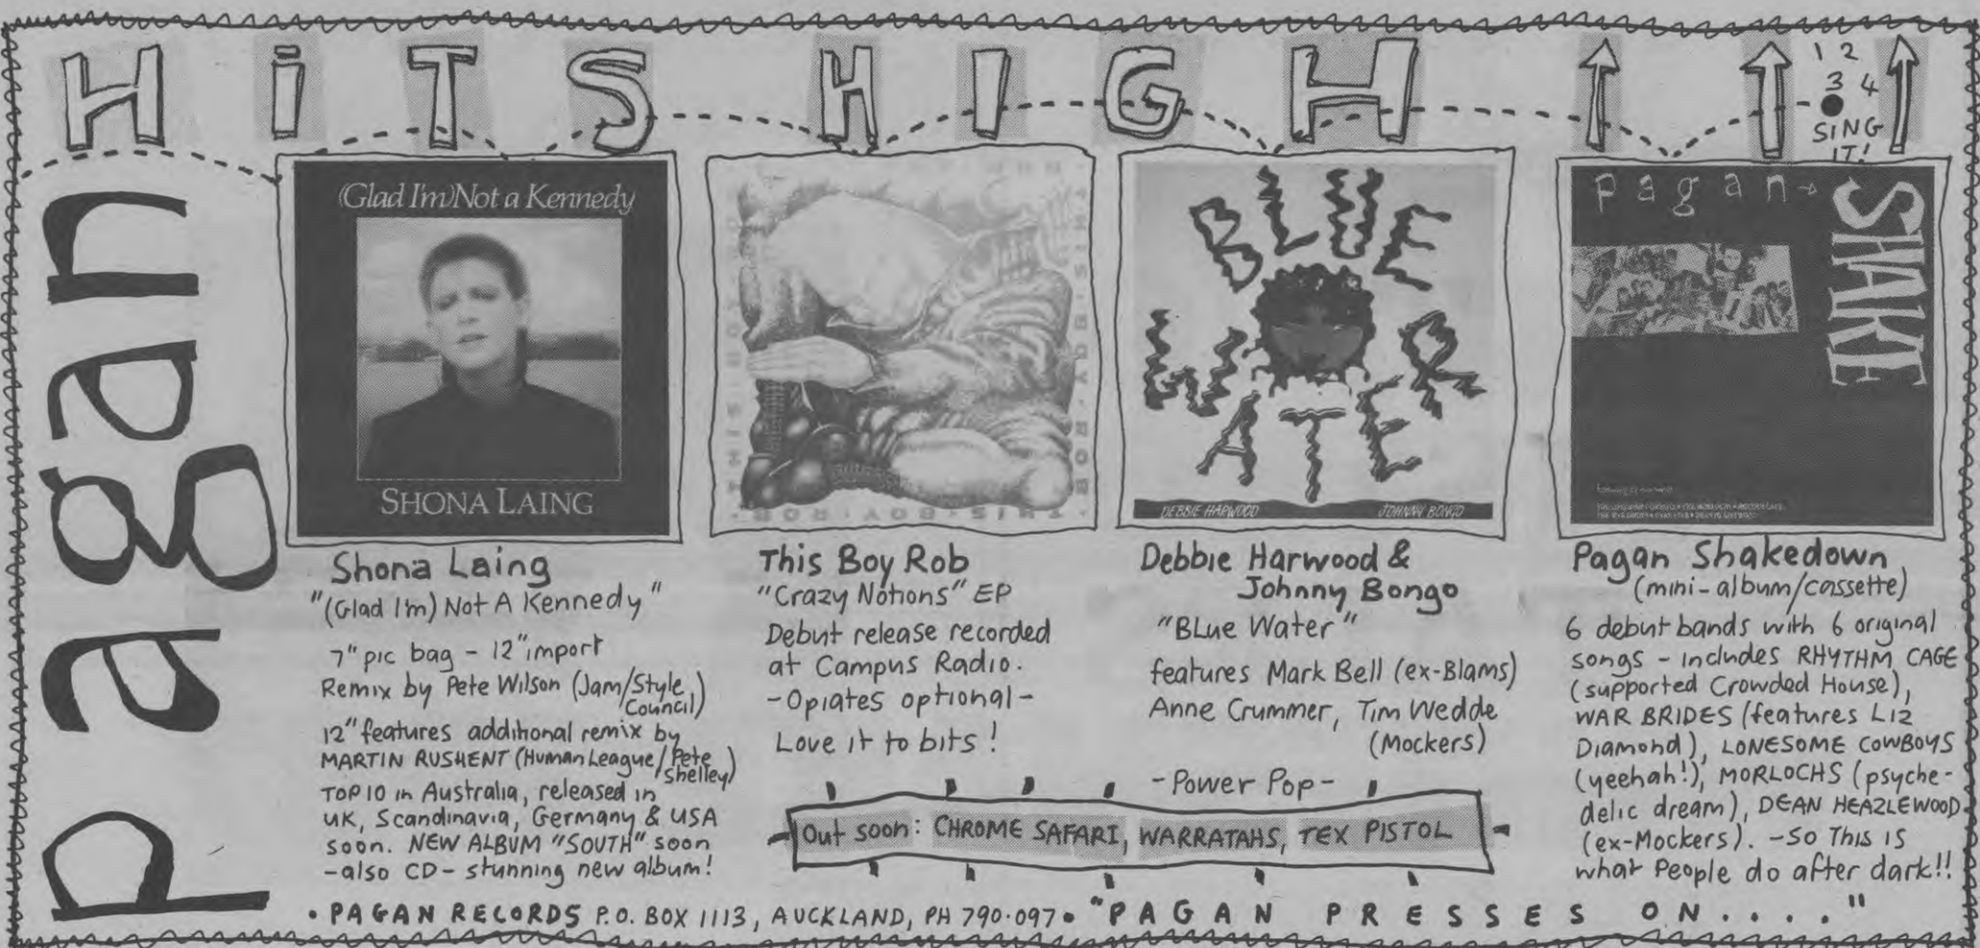 HiTS HIGH
1 2
3 4
SING
IT!
pagan
(Glad I'm) Not a Kennedy
SHONA LAING
Shona Laing
"(Glad I'm) Not A Kennedy"
7" pic bag - 12" import
Remix by Pete Wilson (Jam/Style
Council)
12" features additional remix by
MARTIN RUSHENT (Human League/Pete
Shelley)
TOP 10 in Australia, released in
UK, Scandinavia, Germany & USA
soon. NEW ALBUM "SOUTH" soon
-also CD- stunning new album!
THIS · BOY · ROB
This Boy Rob
"Crazy Notions" EP
Debut release recorded
at Campus Radio.
-Opiates optional-
Love it to bits!
BLUE
WATER
DEBBIE HARWOOD JOHNNY BONGO
Debbie Harwood &
Johnny Bongo
"BLue Water"
features Mark Bell (ex-Blams)
Anne Crummer, Tim Wedde
(Mockers)
-Power Pop-
Out soon: CHROME SAFARI, WARRATAHS, TEX PISTOL
pagan
SHAKE
Pagan Shakedown
(mini-album/cassette)
6 debut bands with 6 original
songs - includes RHYTHM CAGE
(supported Crowded House),
WAR BRIDES (features Liz
Diamond), LONESOME COWBOYS
(yeehah!), MORLOCHS (psyche-
delic dream), DEAN HEAZLEWOOD
(ex-Mockers). -So This is
what People do after dark!!
• PAGAN RECORDS P.O. BOX 1113, AUCKLAND, PH 790·097 • "PAGAN PRESSES ON...."